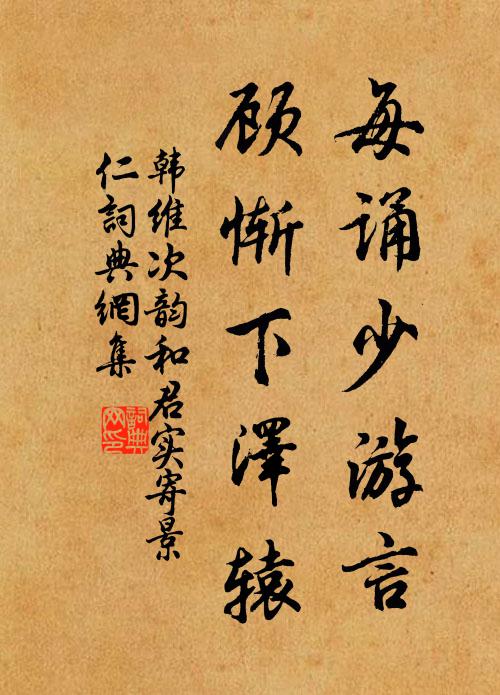 每诵少游言
顾惭下澤辕
韩维次韵和君实寄景
仁詞典網集
詞典
网印